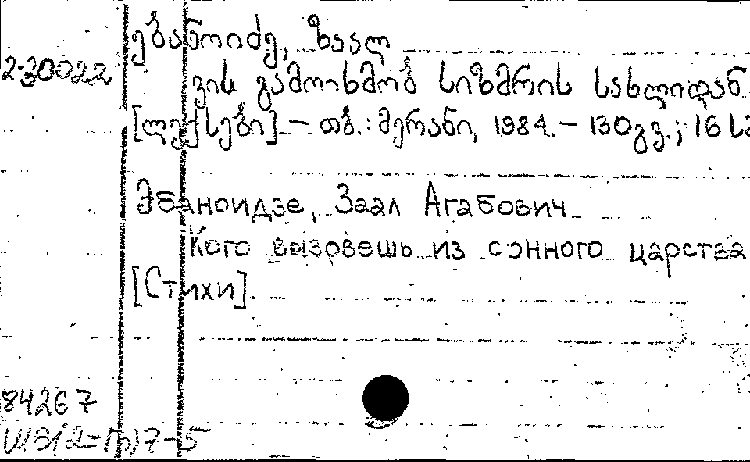 ებანოიძე, ზაალ
2-30022
ვის გამოიხმობ სიზმრის სახლიდან
[ლექსები] – თბ.: მერანი, 1984. – 130გვ.; 16 ს
Эбаноидзе, Заал Агабович
Кого вызовешь из сонного царства
[Стихи]
84267